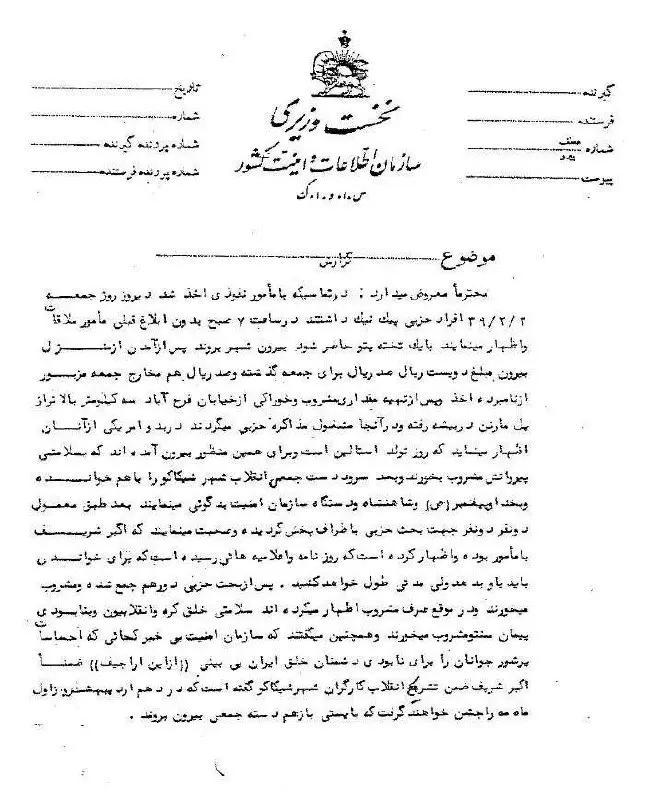 نخست وزیری
سازمان اطلاعات و امنیت کشور
س.ا.و.ا.ک
گیرنده
فرستنده
شماره صنف
پیوست
تاریخ
شماره
شماره پرونده گیرنده
شماره پرونده فرستنده
موضوع گزارش
محترماً معروض میدارد : در تماسیکه با مأمور نفوذی اخذ شد دیروز روز جمعه
۳۹/۲/۲ افراد حزبی پیک نیک داشتند در ساعت ۷ صبح بدون ابلاغ قبلی مأمور ملاقات
واظهار مینمایند با یک تخته پتو حاضر شود بیرون شهر بروند پس از آمدن از منزل
بیرون مبلغ دویست ریال صد ریال برای جمعه گذشته وصد ریال هم مخارج جمعه مزبور
ازنامبرده اخذ وپس ازتهیه مقداری مشروب وخوراکی ازخیابان فرح آباد سه کیلومتر بالاتراز
پل مارنن در بیشه رفته ودرآنجا مشغول مذاکره حزبی میگردند در بدو امر یکی ازآنان
اظهار مینماید که روز تولد استالین است وبرای همین منظور بیرون آمده اند که بسلامتی
پیروانش مشروب بخورند وبعد سرود دست جمعی انقلاب شهر شیکاگو را باهم خوانده
وبخدا وپیغمبر (ص) وشاهنشاه ودستگاه سازمان امنیت بدگوئی مینمایند بعد طبق معمول
دونفر دونفر جهت بحث حزبی باطراف پخش گردیده وصحبت مینمایند که اکبر شریف
بامأمور بوده واظهار کرده است که روز نامه واعلامیه هائی رسیده است که برای خواندن
باید یاو بدهد ولی مدتی طول خواهد کشید . پس ازبحث حزبی دورهم جمع شده ومشروب
میخورند ودر موقع صرف مشروب اظهار میکرده اند سلامتی خلق کره وانقلابیون وبنابودی
پیمان سنتومشروب میخورند وهمچنین میگفتند که سازمان امنیت بی خبر کجائی که احساسات
پرشور جوانان را برای نابودی دشمنان خلق ایران بی بینی ((ازاین اراجیف)) ضمناً
اکبر شریف ضمن تشریح انقلاب کارگران شهر شیکاگو گفته است که در دهم اردیبهشت روز اول
ماه مه راجشن خواهند گرفت که بایستی بازهم دسته جمعی بیرون بروند .